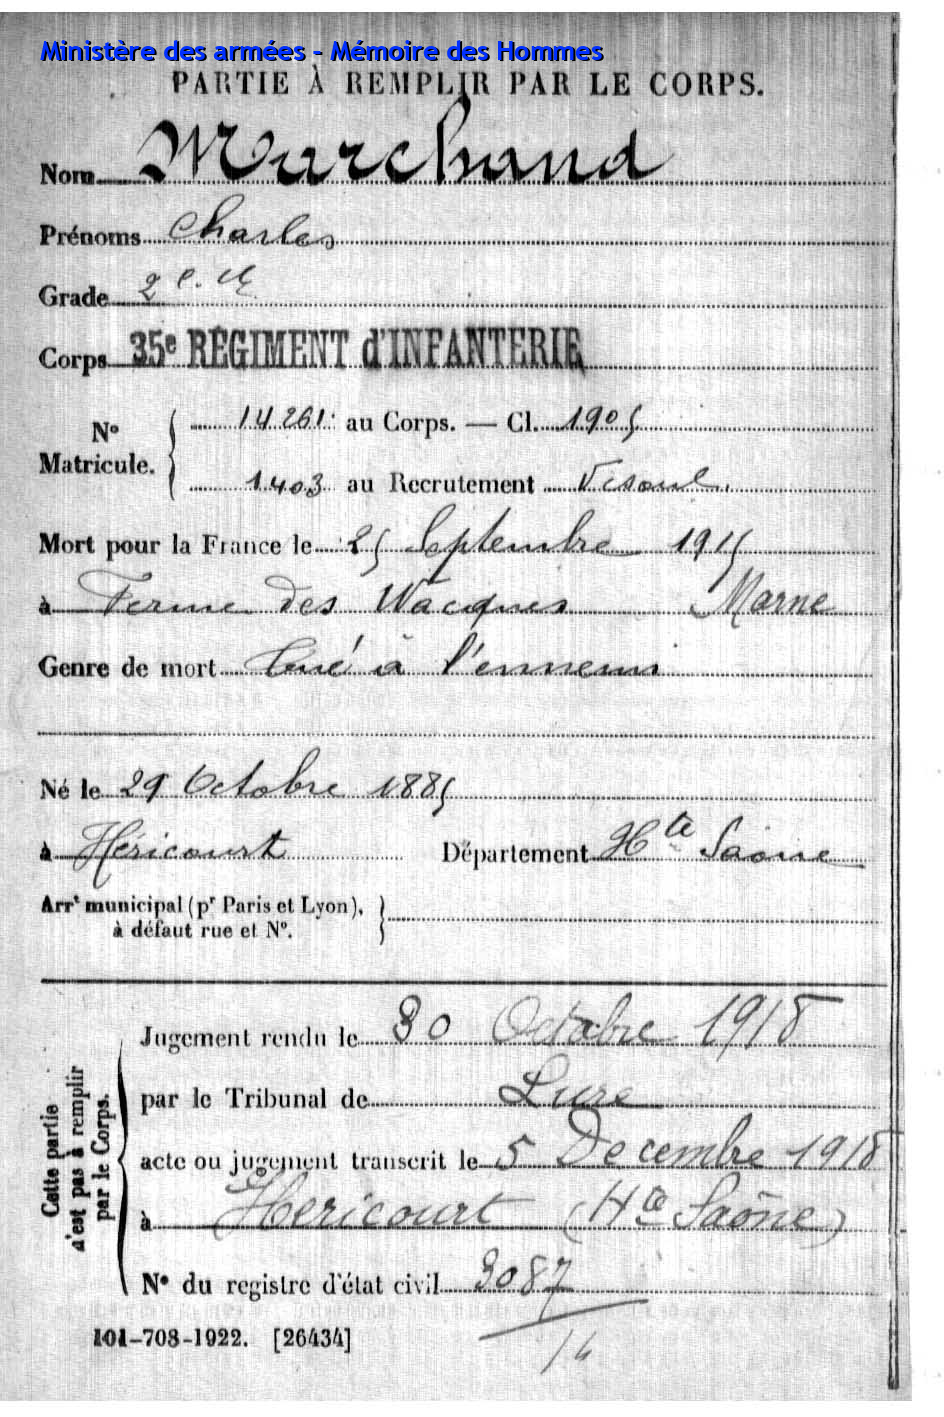 Ministère des armées - Mémoire des Hommes
PARTIE À REMPLIR PAR LE CORPS.
Nom Marchand
Prénoms Charles
Grade 2e. Cl
Corps 35e RÉGIMENT d'INFANTERIE
No Matricule. 14261 au Corps. — Cl. 1905
1403 au Recrutement Vesoul.
Mort pour la France le 25 Septembre 1915
à Ferme des Wacques Marne
Genre de mort Tué à l'ennemi
Né le 29 Octobre 1885
à Héricourt Département Hte Saône
Arrt municipal (pr Paris et Lyon),
à défaut rue et No.
Cette partie
n'est pas à remplir
par le Corps.
Jugement rendu le 30 Octobre 1918
par le Tribunal de Lure
acte ou jugement transcrit le 5 Decembre 1918
à Hericourt (Hte Saône)
No du registre d'état civil 3087
14
101-708-1922. [26434]